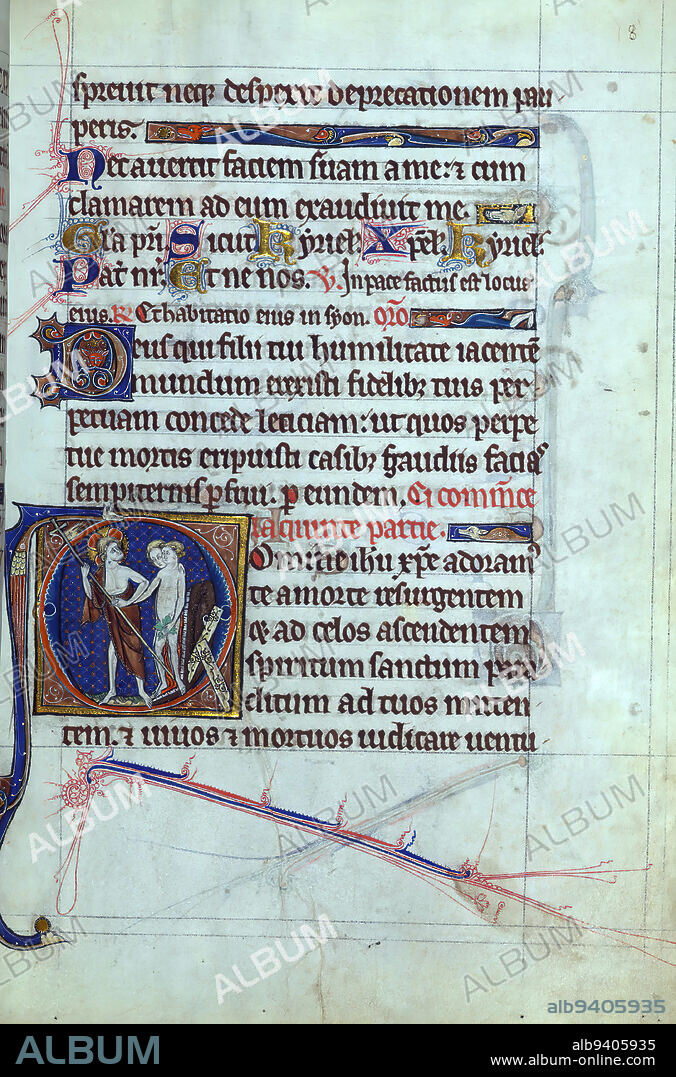 8
spreuit neq; despexit deprecationem pau
peris.
Nec auertit faciem suam a me: ⁊ cum
clamarem ad eum exaudiuit me.
Gła pri. Sicut Kyriel. Xpel. Kyriel.
Pat nr. Et ne nos. V. In pace factus est locus
eius. R Et habitatio eius in syon. Oro
Deus qui filii tui humilitate iacentē
mundum erexisti fidelib; tuis per
petuam concede leticiam: ut quos perpe
tue mortis eripuisti casib; gaudiis facias
sempiternis pfrui. p eundem. Ci comm̄ce
la quinte partie.
Omine ihu xp̄e adoram
te a morte resurgentem
⁊ ad celos ascendentem
spiritum sanctum para
clitum ad tuos mitten
tem. ⁊ uiuos ⁊ mortuos iudicare uentu
ALBUM
alb9405935
ALBUM
alb9405935
www.album-online.com